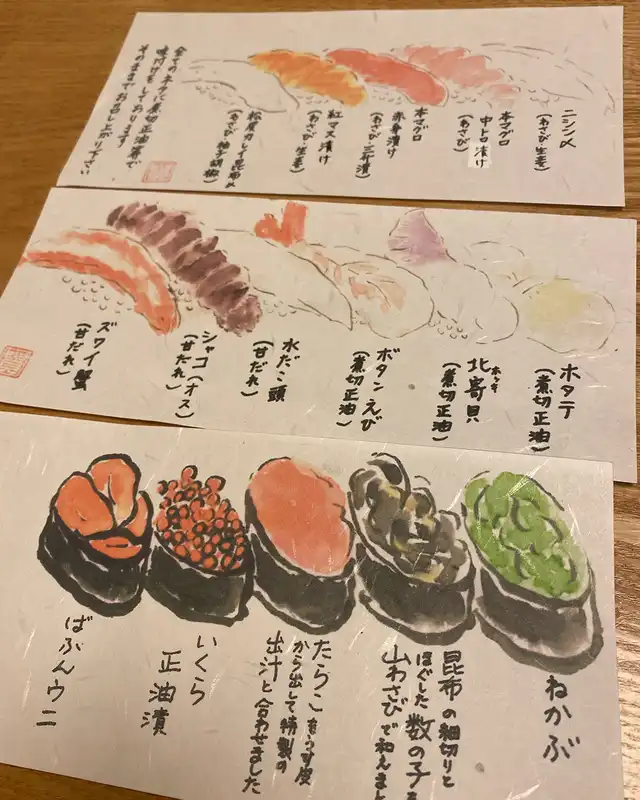 ニシン〆
(わさび・生姜)
本マグロ
中トロ漬け
(わさび)
本マグロ
赤身漬け
(わさび・三升漬)
紅マス漬け
(わさび・生姜)
松皮カレイ昆布〆
(わさび・柚子胡椒)
全てのネタに煮切正油等で
味付けをしております
そのままでお召し上がり下さい
ホタテ
(煮切正油)
ホッキ
北寄貝
(煮切正油)
ボタンえび
(煮切正油)
水だこ頭
(甘だれ)
シャコ(オス)
(甘だれ)
ズワイ蟹
(甘だれ)
ねかぶ
昆布の細切りと
ほぐした数の子を
山わさびで和えまし
たらこをうす皮
から出して特製の
出汁と合わせました
いくら
正油漬
ばふんウニ